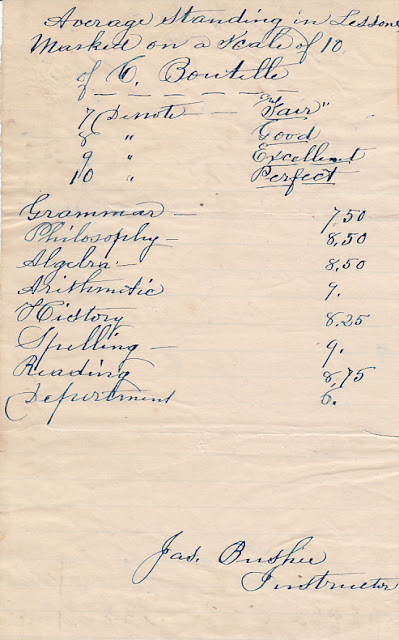 Average Standing in Lessons
Marked on a Scale of 10
of C. Boutelle
7 Denote — "Fair"
8 " Good
9 " Excellent
10 " Perfect
Grammar — 7,50
Philosophy — 8,50
Algebra — 8,50
Arithmetic 9.
History 8,25
Spelling — 9.
Reading 8,75
Deportment 6.
Jas. Bushee
Instructor